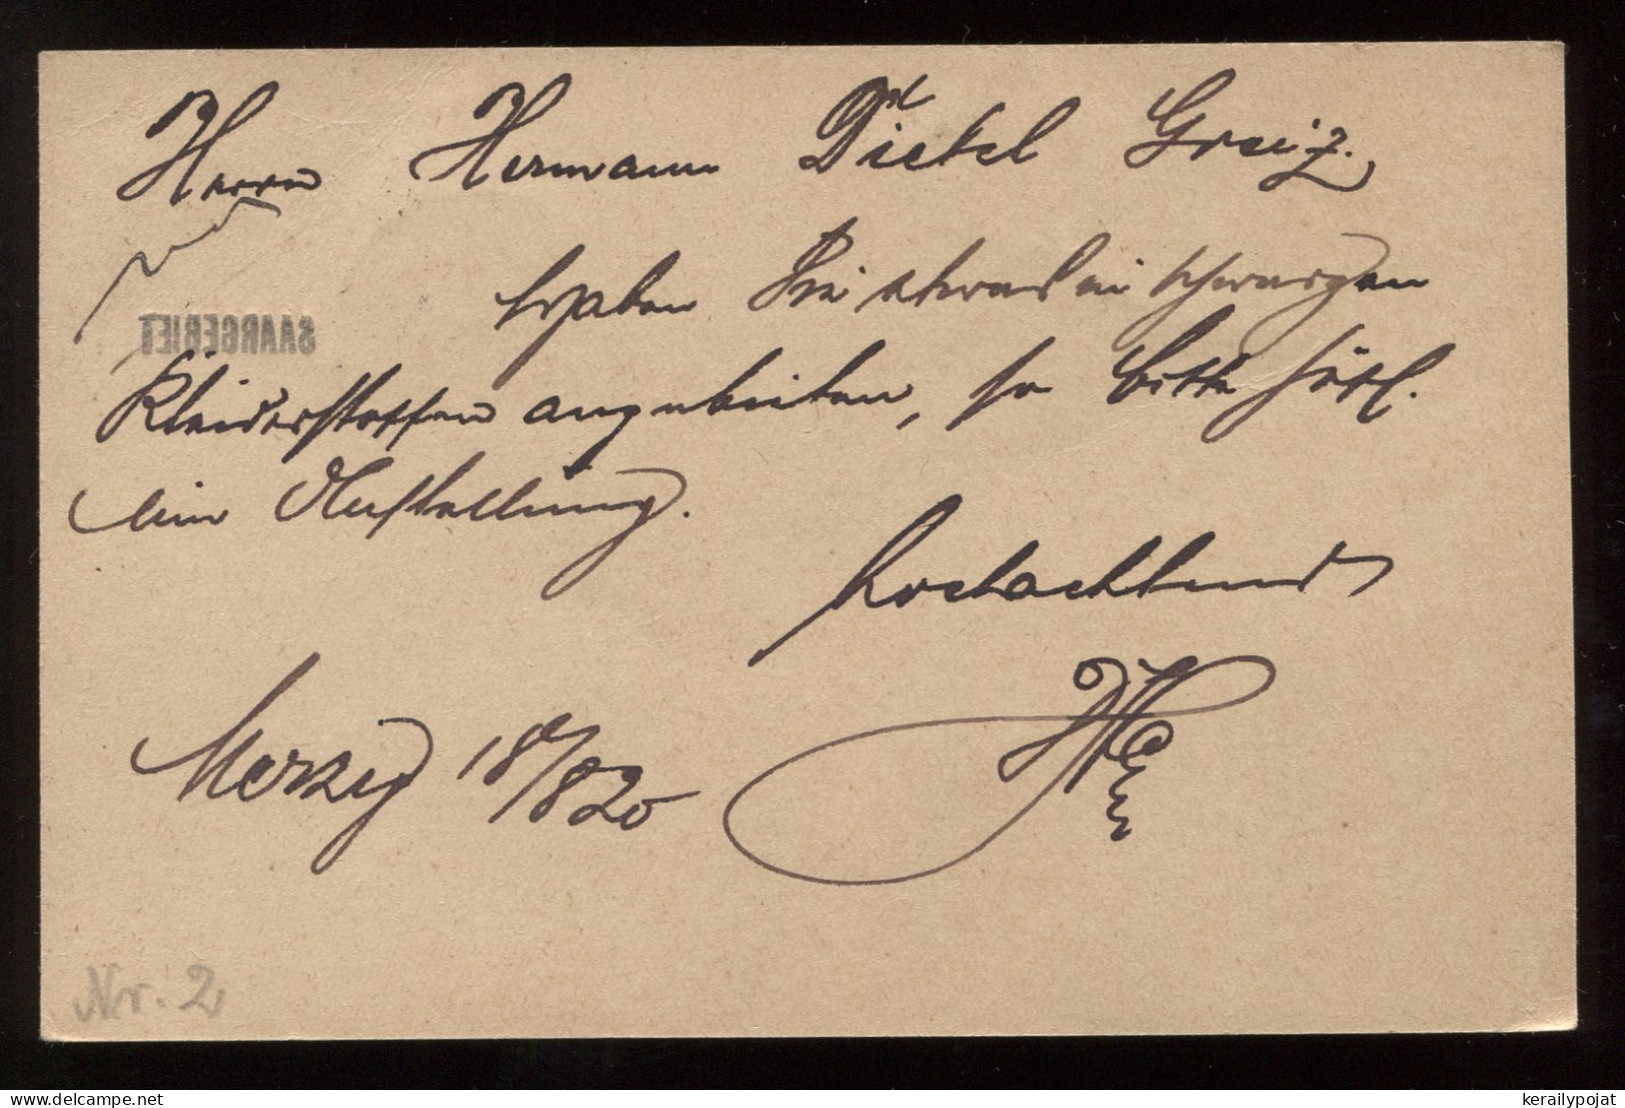 Herrn Hermann Dietel Greiz.
Haben Sie etwas in schwarzen
SAARGEBIET
Kleiderstoffen anzubieten, so bitte höfl.
um Aufstellung.
Hochachtend
Merzig 18/8 20
Nr. 2
kerailypojat